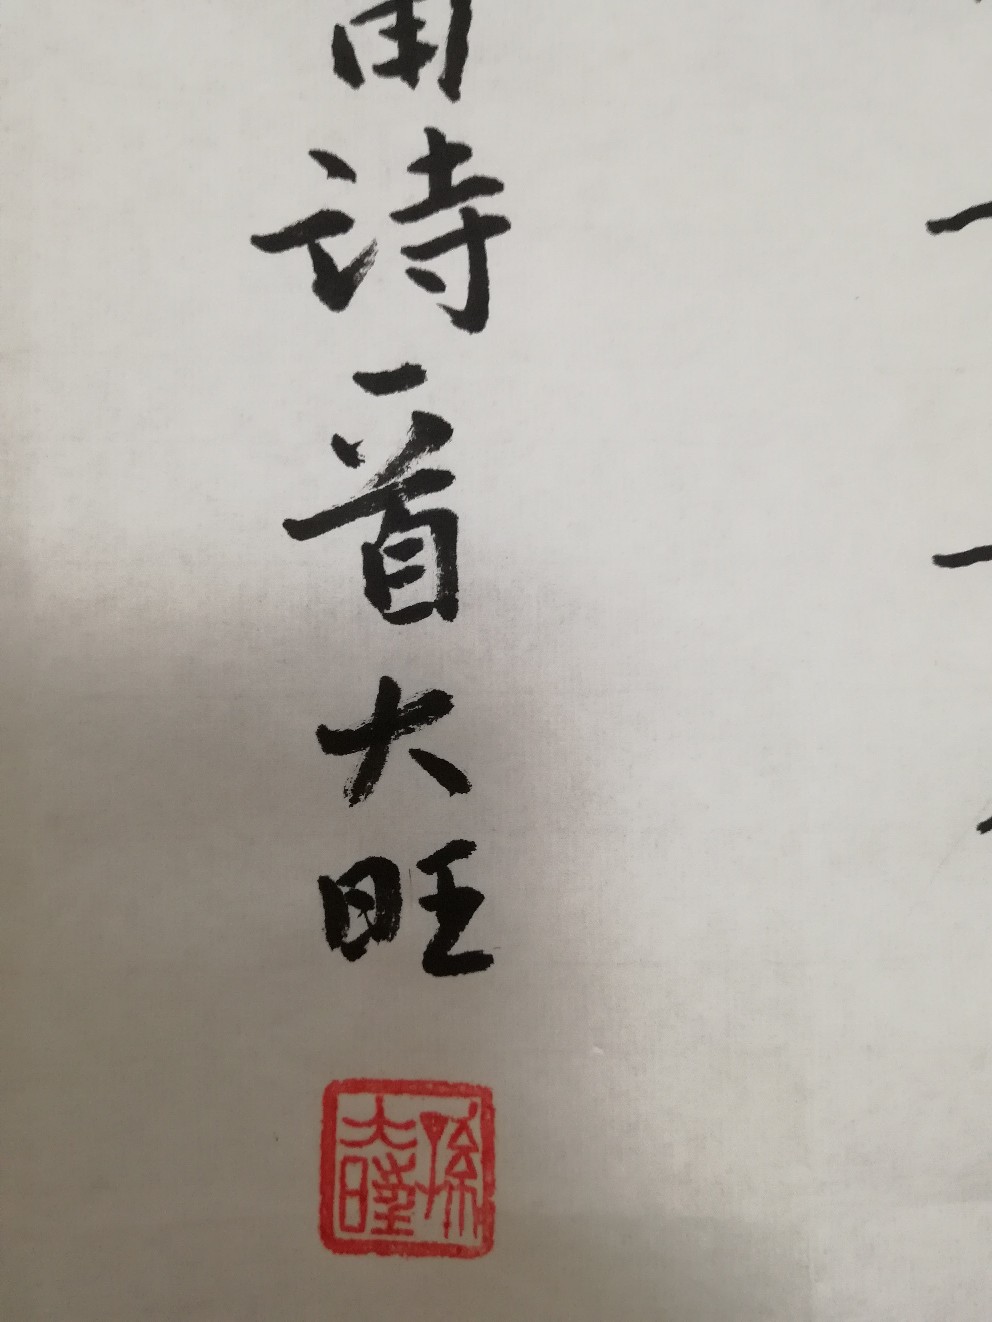 诗一首大旺
孫大旺